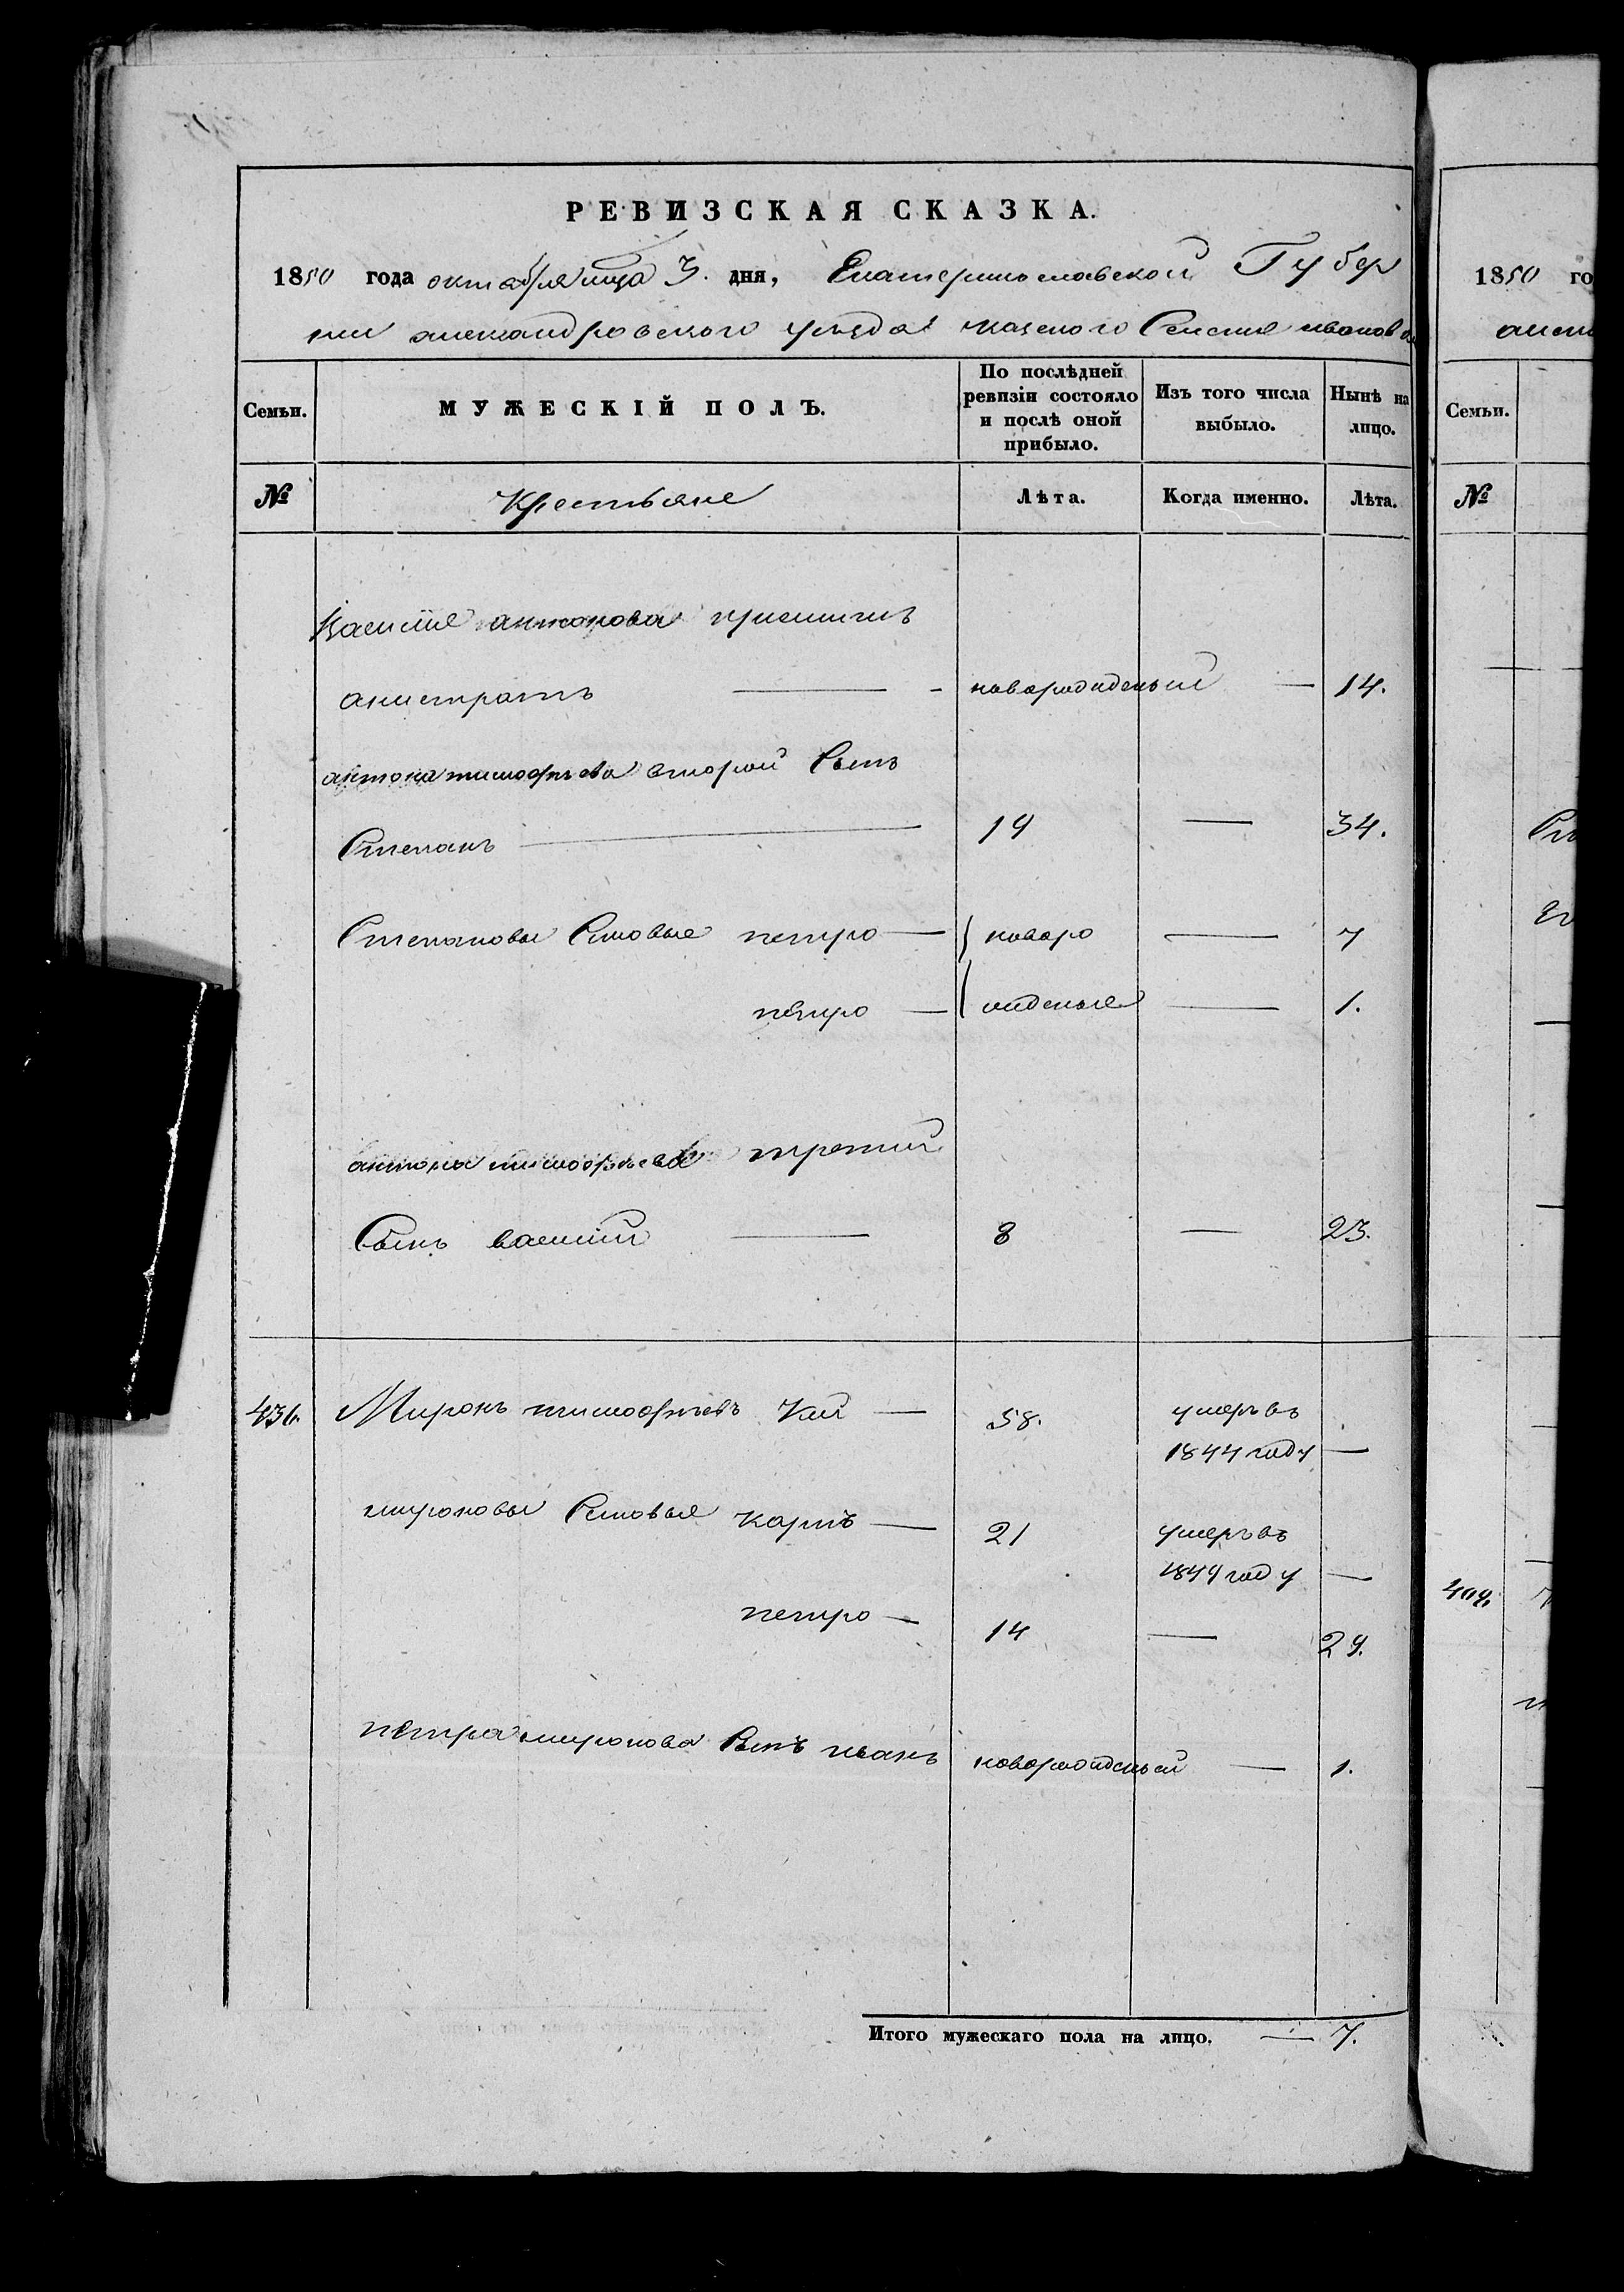 РЕВИЗСКАЯ СКАЗКА.
1850 года октября мца 3. дня, Екатеринославской Губер
нии александровского уезда казеного Селения иванов
Семьи. МУЖЕСКІЙ ПОЛЪ. По послѣдней ревизіи состояло и послѣ оной прибыло. Изъ того числа выбыло. Нынѣ на лицо.
№ Крестьяне Лѣта. Когда именно. Лѣта.
Василие антонова приемишъ
анистратъ — новорожденый — 14.
антона тимофѣева второй Сынъ
Степанъ — 19 — 34.
Степановы Сыновье петро — новоро — 7
петро — жденые — 1.
антона тимофѣева третий
Сынъ василий — 8 — 23.
436. Миронъ тимофѣевъ Кий — 58. умеръ въ
1844 году —
мироновы Сыновья карпъ — 21 умеръ въ
1849 году —
петро — 14 — 29.
петра миронова Сынъ иванъ новорожденый — 1.
Итого мужескаго пола на лицо. — 7.
1850 го
Семьи.
№
409.